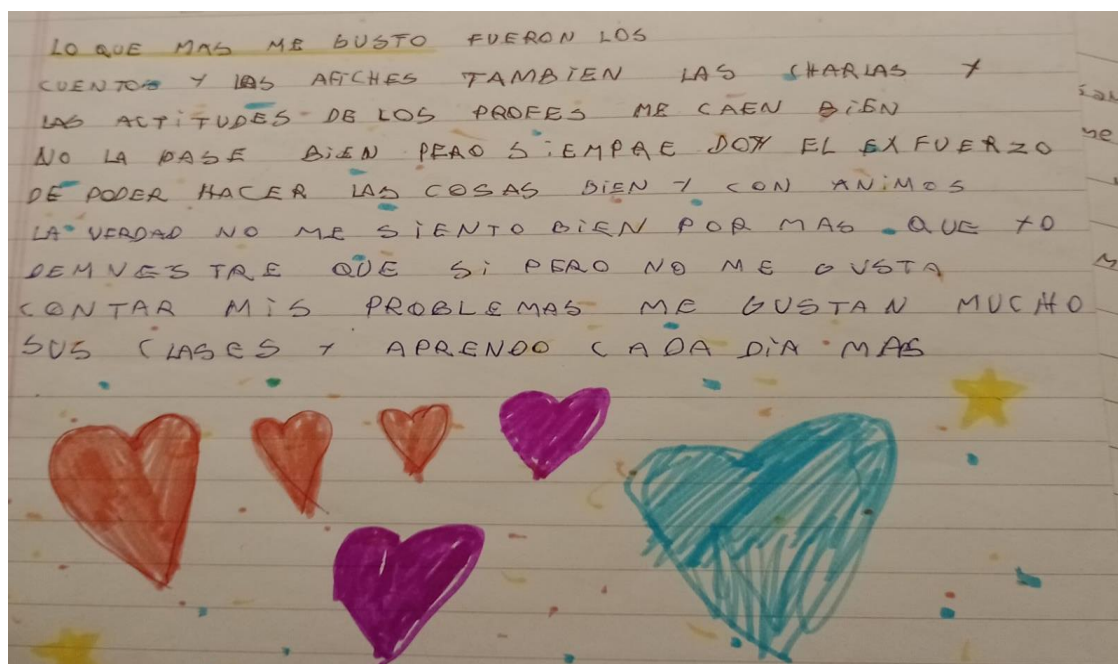 LO QUE MAS ME GUSTO FUERON LOS
CUENTOS Y LOS AFICHES TAMBIEN LAS CHARLAS Y
LAS ACTITUDES DE LOS PROFES ME CAEN BIEN
NO LA PASE BIEN PERO SIEMPRE DOY EL EXFUERZO
DE PODER HACER LAS COSAS BIEN Y CON ANIMOS
LA VERDAD NO ME SIENTO BIEN POR MAS QUE YO
DEMNESTRE QUE SI PERO NO ME GUSTA
CONTAR MIS PROBLEMAS ME GUSTAN MUCHO
SUS CLASES Y APRENDO CADA DIA MAS